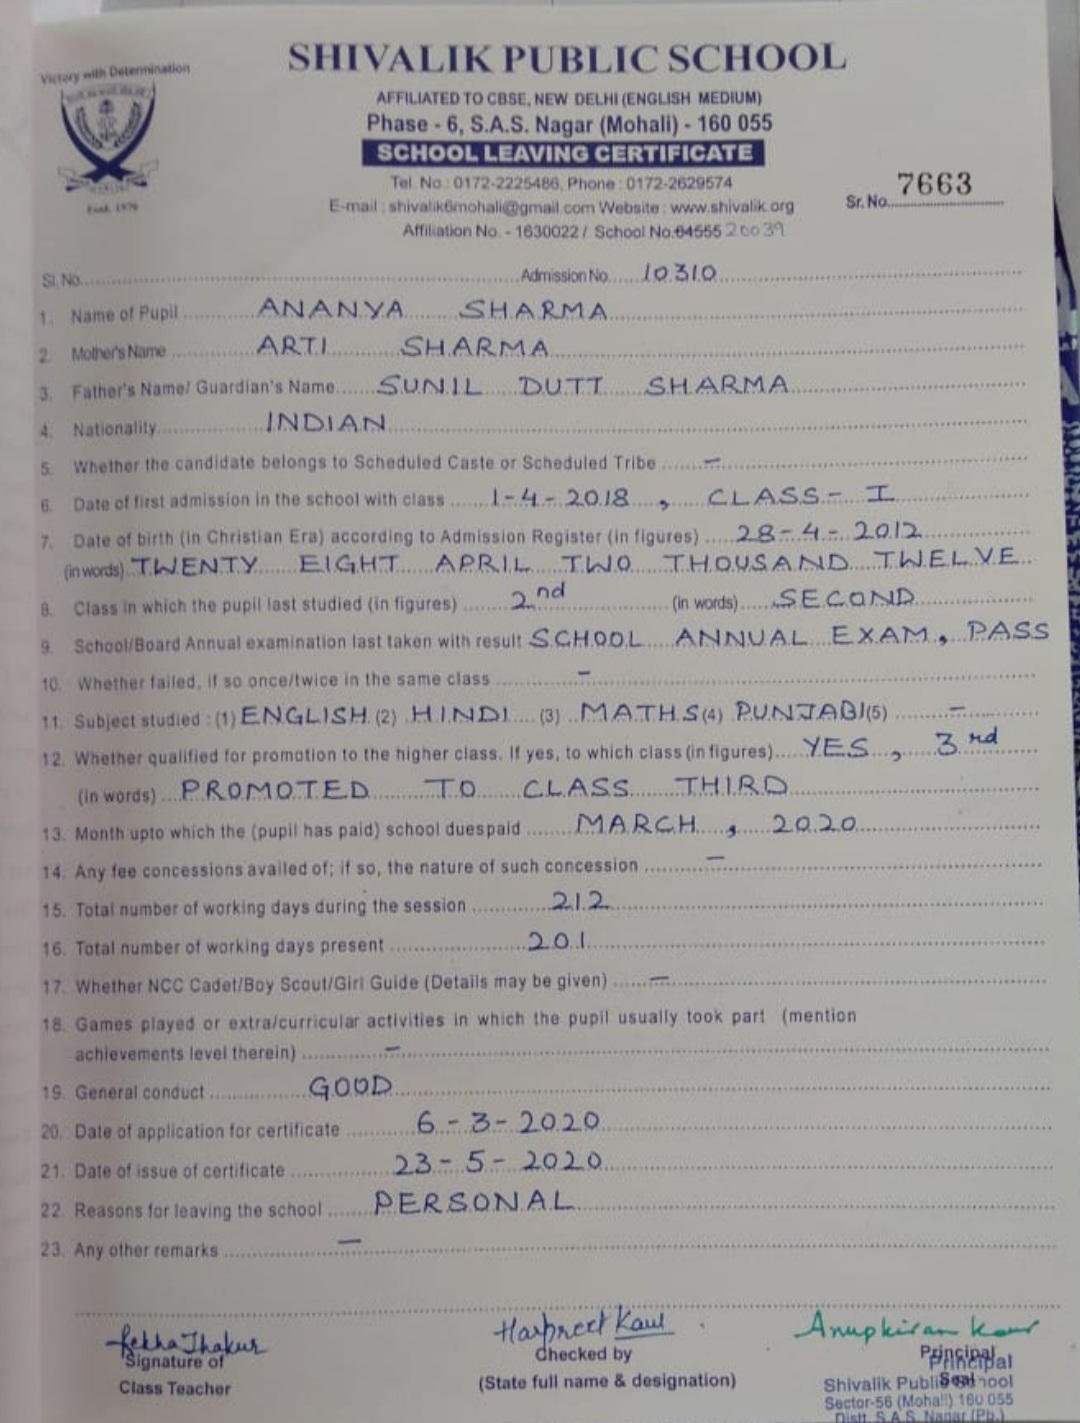 Victory with Determination
SHIVALIK PUBLIC SCHOOL
AFFILIATED TO CBSE, NEW DELHI (ENGLISH MEDIUM)
Phase - 6, S.A.S. Nagar (Mohali) - 160 055
SCHOOL LEAVING CERTIFICATE
Tel. No.: 0172-2225486, Phone : 0172-2629574
E-mail : shivalik6mohali@gmail.com Website : www.shivalik.org
Affiliation No. - 1630022 / School No.64555 20039
Estd. 1976
Sr. No. 7663
Sl. No. Admission No. 10310
1. Name of Pupil ANANYA SHARMA
2. Mother's Name ARTI SHARMA
3. Father's Name/ Guardian's Name SUNIL DUTT SHARMA
4. Nationality INDIAN
5. Whether the candidate belongs to Scheduled Caste or Scheduled Tribe –
6. Date of first admission in the school with class 1-4-2018, CLASS- I
7. Date of birth (in Christian Era) according to Admission Register (in figures) 28-4-2012
(in words) TWENTY EIGHT APRIL TWO THOUSAND TWELVE
8. Class in which the pupil last studied (in figures) 2nd (in words) SECOND
9. School/Board Annual examination last taken with result SCHOOL ANNUAL EXAM, PASS
10. Whether failed, if so once/twice in the same class –
11. Subject studied : (1) ENGLISH (2) HINDI (3) MATHS (4) PUNJABI (5) –
12. Whether qualified for promotion to the higher class. If yes, to which class (in figures) YES, 3rd
(in words) PROMOTED TO CLASS THIRD
13. Month upto which the (pupil has paid) school duespaid MARCH, 2020
14. Any fee concessions availed of; if so, the nature of such concession –
15. Total number of working days during the session 212
16. Total number of working days present 201
17. Whether NCC Cadet/Boy Scout/Girl Guide (Details may be given) –
18. Games played or extra/curricular activities in which the pupil usually took part (mention
achievements level therein) –
19. General conduct GOOD
20. Date of application for certificate 6-3-2020
21. Date of issue of certificate 23-5-2020
22. Reasons for leaving the school PERSONAL
23. Any other remarks –
Rekha Thakur
Signature of
Class Teacher
Harpreet Kaur
Checked by
(State full name & designation)
Anupkiran Kaur
Principal
Seal
Principal
Shivalik Public School
Sector-56 (Mohali) 160 055
Distt. S.A.S. Nagar (Pb.)